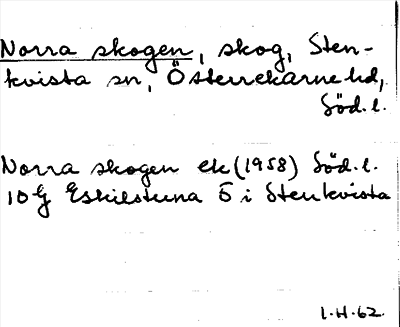 Norra skogen, skog, Sten-
kvista sn, Österrekarne hd,
Söd. l.
Norra skogen ek (1958) Söd. l.
10 G Eskilstuna Ö i Stenkvista
I.H.62.